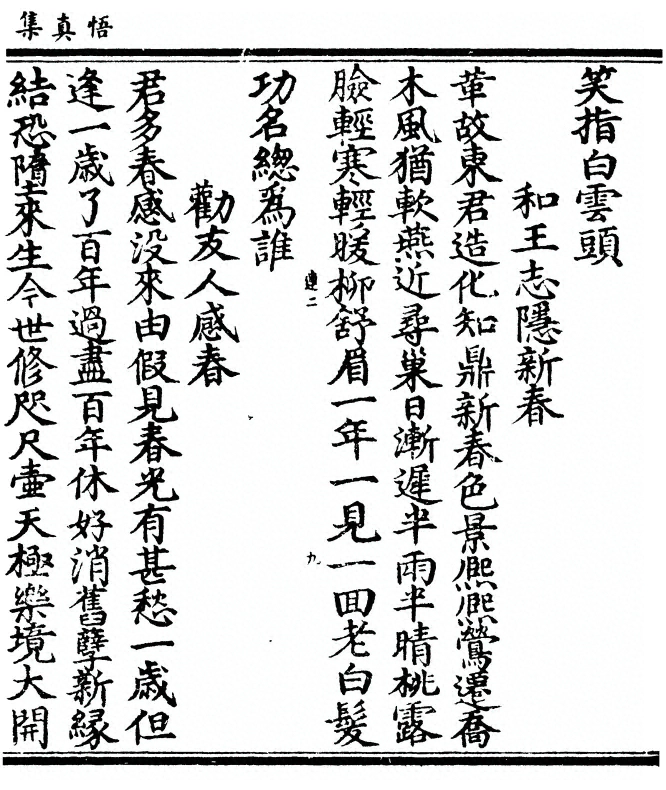 悟真集
笑指白雲頭
和王志隱新春
革故東君造化知鼎新春色景熈熈鶯遷喬
木風猶軟燕近尋巢日漸遲半雨半晴桃露
臉輕寒輕暖柳舒眉一年一見一回老白髮
功名緫為誰
連二
九
勸友人感春
君多春感没來由假見春光有甚愁一歲但
逢一歲了百年過盡百年休好消舊孽新緣
結恐隋來生今世修咫尺壷天極樂境大開